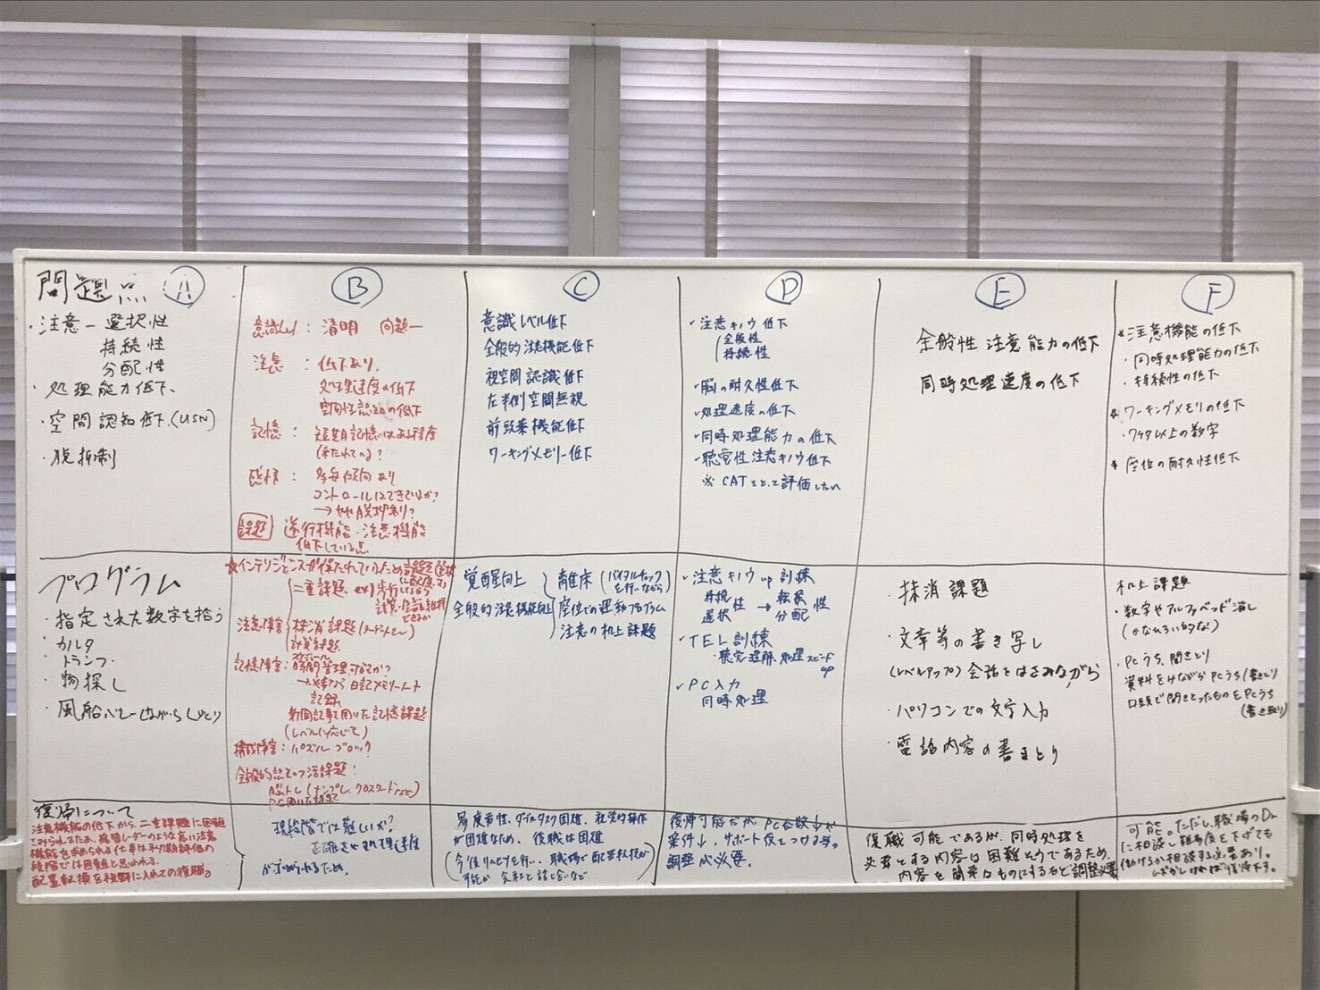 問題点 A
・注意-選択性
持続性
分配性
・処理能力低下、
・空間認知低下(USN)
・脱抑制
B
意識レベル：清明 問題-
注意：低下あり、
処理速度の低下
空間性認知の低下
記憶：短期記憶はある程度
(保たれている?
感情：多弁傾向あり
コントロールはできているか?
→やや脱抑制?
課題 遂行機能・注意機能
低下している点
C
意識レベル低下
全般的注意機能低下
視空間認識低下
左半側空間無視
前頭葉機能低下
ワーキングメモリー低下
D
・注意キノウ低下
全般性
持続性
・脳の耐久性低下
・処理速度の低下
・同時処理能力の低下
・聴覚性注意キノウ低下
※CATをとって評価したい
E
全般性注意能力の低下
同時処理速度の低下
F
*注意機能の低下
・同時処理能力の低下
・持続性の低下
*ワーキングメモリの低下
・7ケタ以上の数字
*座位の耐久性低下
プログラム
・指定された数字を拾う
・カルタ
・トランプ
・物探し
・風船バレーしながらしりとり
★インテリジェンスが保たれているため課題を
二重課題、ex) 歩行しながら
計算・会話
注意障害：抹消課題
計算課題
記憶障害：
日記メモリーノート
記録
新聞記事を用いた記憶課題
(レベルに応じて)
構成障害：パズル ブロック
全般的
脳トレ(ナンプレ、クロスワードetc)
覚醒向上
全般的注意機能向上
離床(バイタルチェック
を行いながら)
座位での運動プログラム
注意の机上課題
・注意キノウup訓練
持続性 → 転換性
選択 分配
・TEL訓練
・聴覚理解、処理スピード
up
・PC入力
同時処理
・抹消課題
・文章等の書き写し
(レベルアップ) 会話をはさみながら
・パソコンでの文字入力
・電話内容の書きとり
机上課題
・数字やアルファベット消し
(かなひろい的な)
・PCうち、聞きとり
資料をみながらPCうち/書きとり
口頭で聞きとったものをPCうち
(書き取り)
復帰について
注意機能の低下から、二重課題に困難
機能を求められる仕事は早期評価の
段階では困難と思われる。
配置転換を視野に入れての復職。
現段階では難しいか?
正確さやそれ
がずれられるため。
易疲労性、ダブルタスク困難、社会的
が困難なため、復職は困難
(今後リハビリを行い、職場で配置転換が
可能か会社と話し合いなど
復帰可能だが PC台数↓か
案件↓、サポート役をつける等。
調整が必要。
復職可能であるが、同時処理を
必要とする内容は困難そうであるため、
内容を簡単なものにするなど調整必要
可能。ただし、職場のDr
に相談し難易度を下げても
働けるか相談する必要あり。